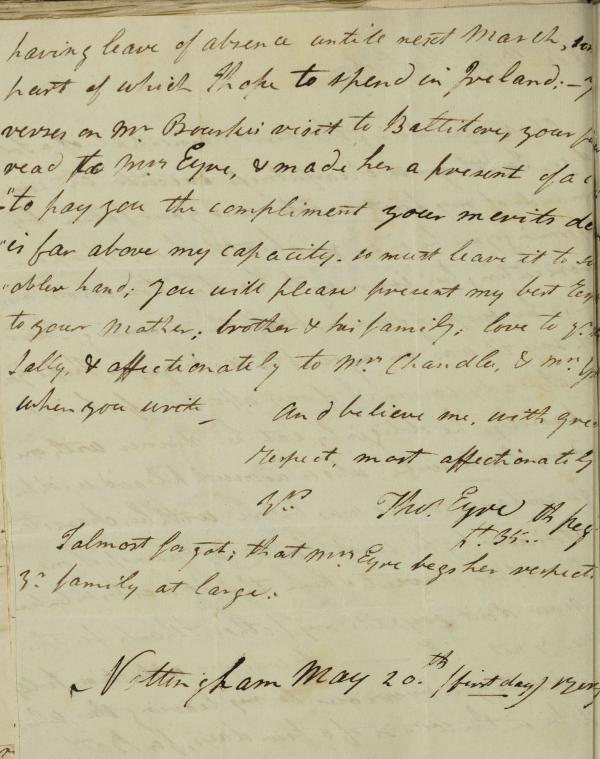 having leave of absence untill next March, som
part of which I hope to spend in Ireland; —
verses on Mr Bourke's visit to Ballitore, your
read to Mrs Eyre, & made her a present of a
"to pay you the compliment your merits de
"is far above my capacity. so must leave it to
"abler hand; you will please present my best
to your Mother; brother & his family; love to yr
Sally, & affectionately to Mrs Chandler, & Mrs
when you write_ And believe me, with gre
respect, most affectionately
Yrs Thos. Eyre
35..
I almost forgot; that Mrs Eyre begs her respect
yr family at large.
Nottingham May 20th (first day)